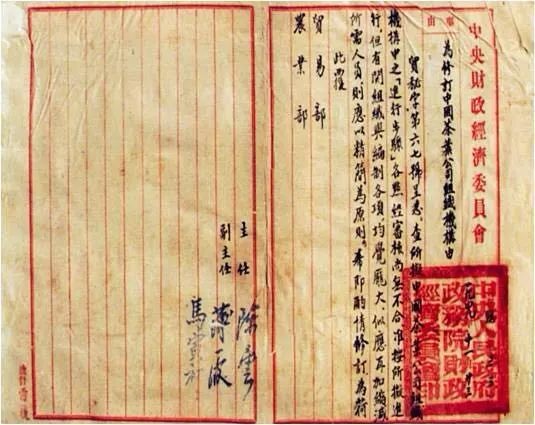 中央財政經濟委員會
事由
為修訂中國茶葉公司組織機構由
貿秘字第六七號呈悉。查所擬中國茶葉公司組織
機構中之「進行步驟」各點經審核尚無不合准按所擬進
行，但有關組織與編制各項，均覺龐大，似應再加縮減
所需人員，則應以精簡為原則。希即酌情修訂為荷
此覆
貿易部
農業部
主任 陳雲
副主任 薄一波
馬寅初
中央人民政府
政務院財政
經濟委員會印